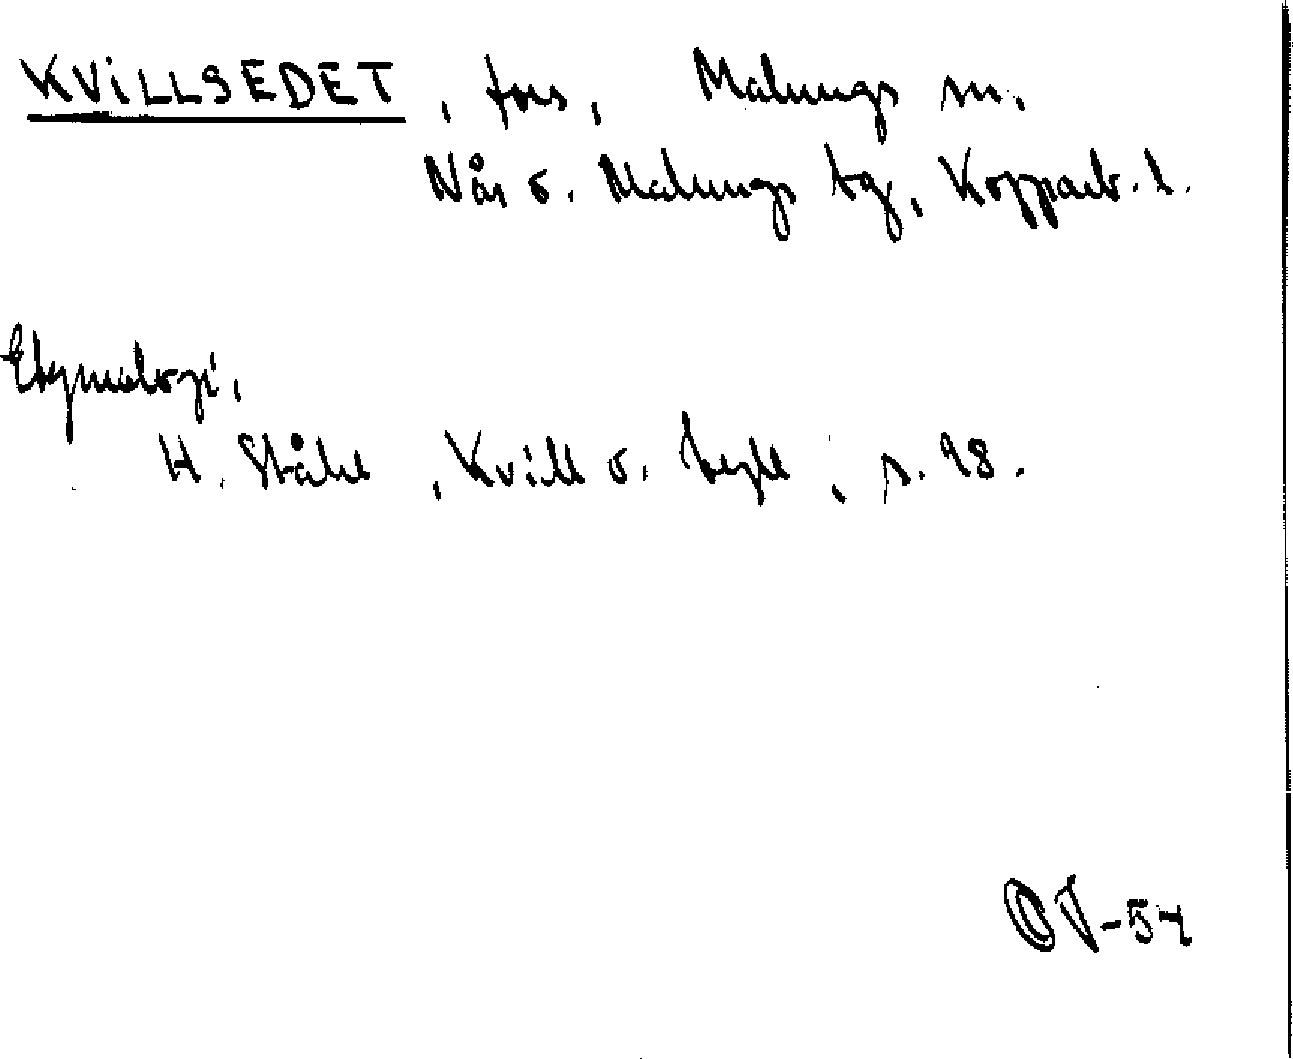 KVILLSEDET, fors, Malungs sn.
Nås o. Malungs tg, Kopparb. l.
Etymologi,
H. Ståhl, Kvill o. tyll, s. 98.
OV-54